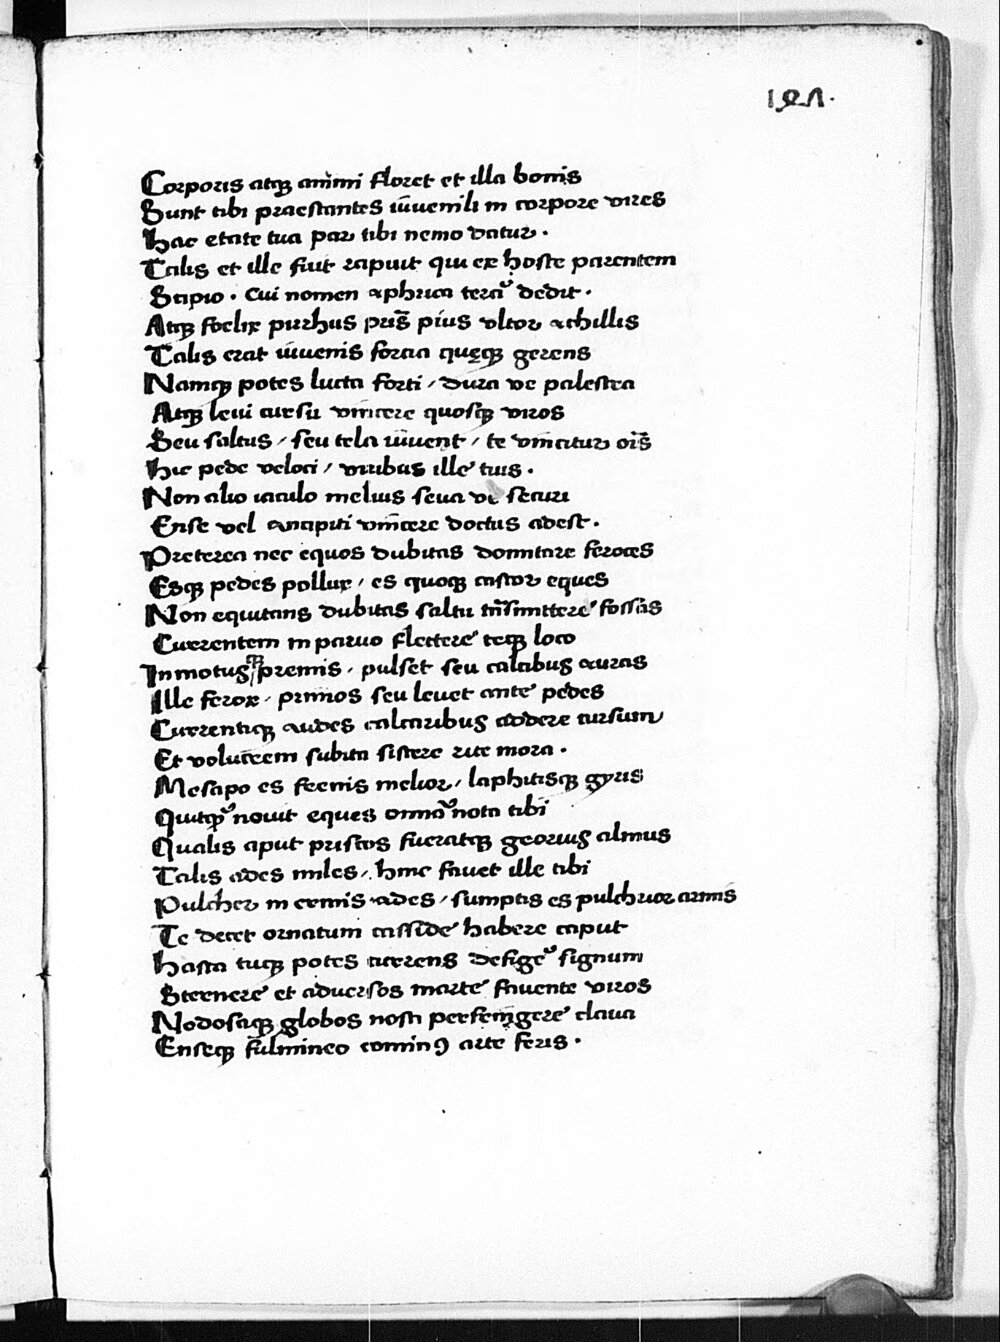 147.
Corporis atq̃ animi floret et illa bonis
Sunt tibi praestantes iuuenili in corpore uires
Hac etate tua par tibi nemo datur.
Talis et ille fuit rapuit qui ex hoste parentem
Scipio. cui nomen aphrica terã dedit.
Atq̃ foelix pirhus pris̃ pius ultor achillis
Talis erat iuuenis forcia quęq̃ gerens
Namq̃ potes lucta forti / dura ue palestra
Atq̃ leui cursu uincere quosq̃ uiros
Seu saltus / seu tela iuuent / te uincitur oĩs
Hic pede ueloci / uiribus ille tuis.
Non alio iaculo melius seua ue securi
Ense uel ancipiti uincere doctus adest.
Preterea nec equos dubitas domitare feroces
Esq̃ pedes pollux / es quoq̃ castor eques
Non equitans dubitas saltu trãsmittere fossas
Currentem in paruo flectere teq̃ loco
Inmotusq̃ premis / pulset seu calcibus auras
Ille ferox / primos seu leuet ante pedes
Currentiq̃ audes calcaribus addere cursum
Et uolucrem subita sistere rite mora.
Mesapo es frenis melior / laphitisq̃ gyris
Quicq̃ nouit eques omñ nota tibi
Qualis aput priscos fueratq̃ georius almus
Talis ades miles / hinc fauet ille tibi
Pulcher inermis ades / sumptis es pulchrior armis
Te decet ornatum casside habere caput
Hasta tuq̃ potes currens defigẽ signum
Sternere et aduersos marte fauente uiros
Nodosaq̃ globos nosti perfringere claua
Enseq̃ fulmineo cominꝰ arte feris.